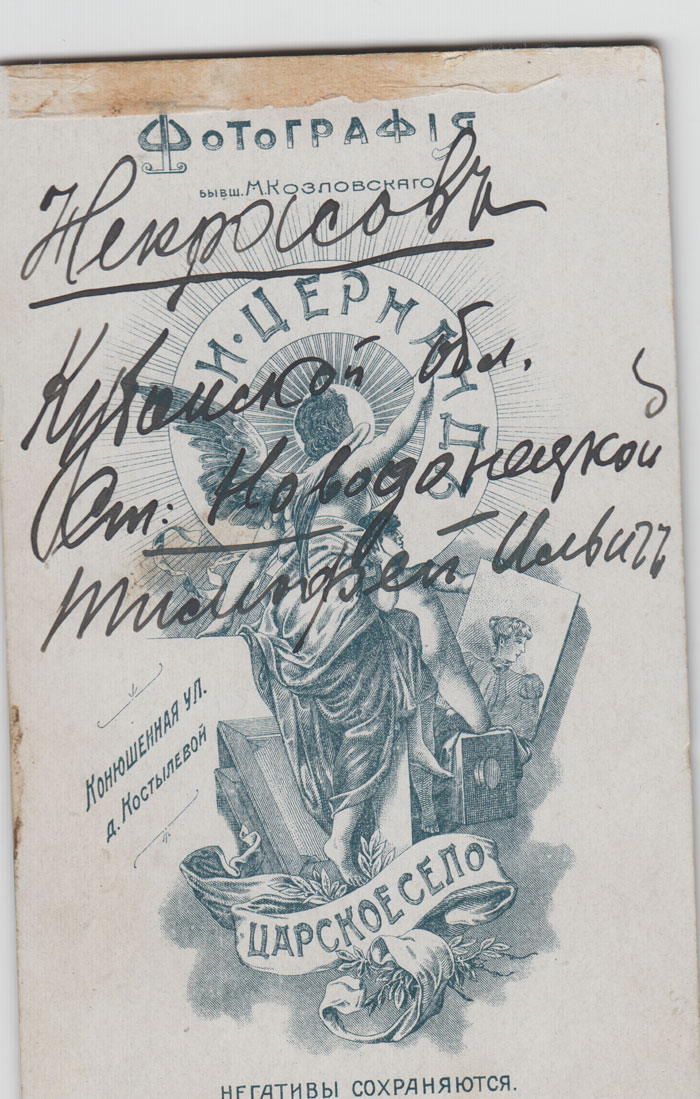 ФОТОГРАФІЯ
БЫВШ. М. КОЗЛОВСКАГО
Некрасовъ
И. ЦЕРНАНДЪ
Кубанской обл.
Ст: Новодонецкой
Тимофей Ильичъ
КОНЮШЕННАЯ УЛ.
Д. КОСТЫЛЕВОЙ
ЦАРСКОЕ СЕЛО
НЕГАТИВЫ СОХРАНЯЮТСЯ.